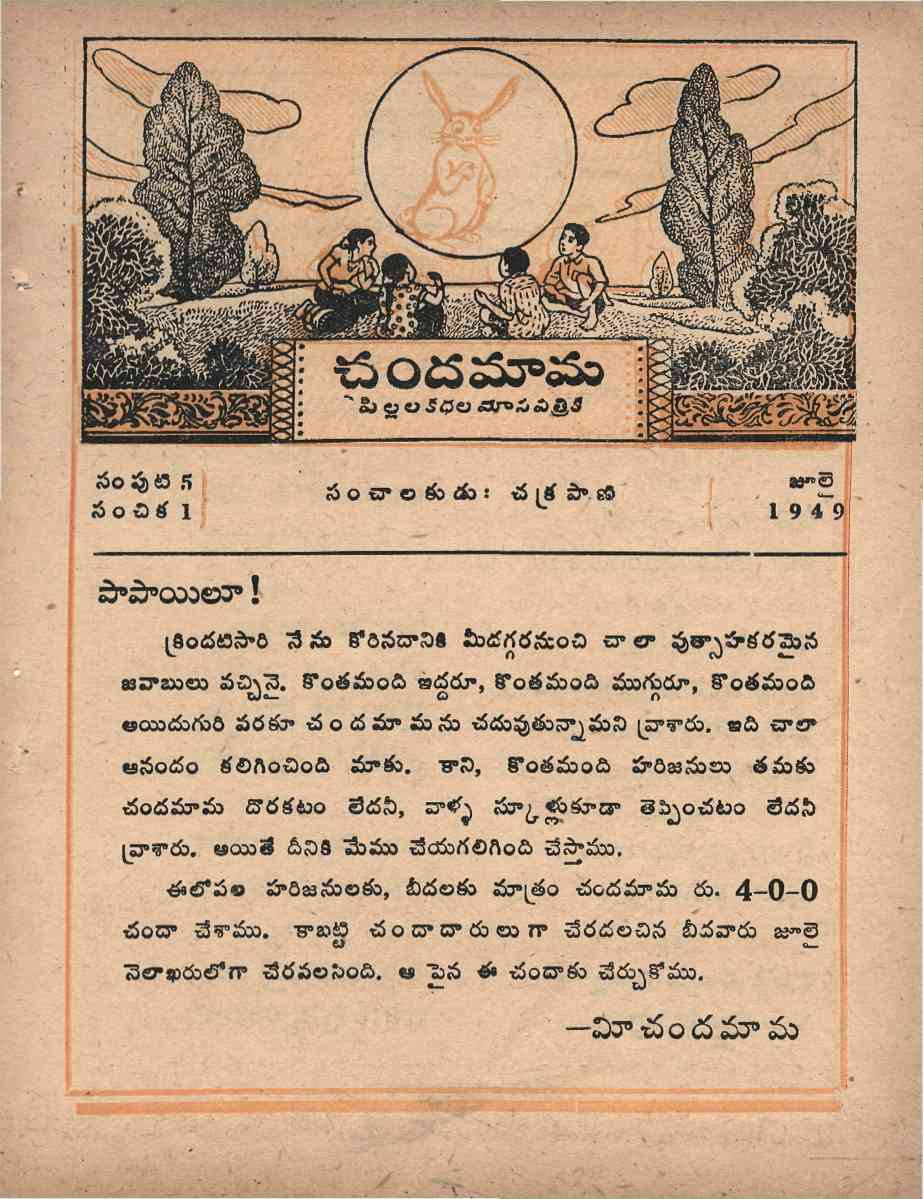 చందమామ
పిల్లల కథల మాసపత్రిక
సంపుటి 5
సంచిక 1
సంచాలకుడు: చక్రపాణి
జూలై
1949
పాపాయిలూ!
క్రిందటిసారి నేను కోరినదానికి మీదగ్గరనుంచి చాలా వుత్సాహకరమైన
జవాబులు వచ్చినై. కొంతమంది ఇద్దరూ, కొంతమంది ముగ్గురూ, కొంతమంది
అయిదుగురి వరకూ చందమామను చదువుతున్నామని వ్రాశారు. ఇది చాలా
ఆనందం కలిగించింది మాకు. కాని, కొంతమంది హరిజనులు తమకు
చందమామ దొరకటం లేదనీ, వాళ్ళ స్కూళ్లుకూడా తెప్పించటం లేదనీ
వ్రాశారు. అయితే దీనికి మేము చేయగలిగింది చేస్తాము.
ఈలోపల హరిజనులకు, బీదలకు మాత్రం చందమామ రు. 4-0-0
చందా చేశాము. కాబట్టి చందాదారులుగా చేరదలచిన బీదవారు జూలై
నెలాఖరులోగా చేరవలసింది. ఆ పైన ఈ చందాకు చేర్చుకోము.
—మీ చందమామ